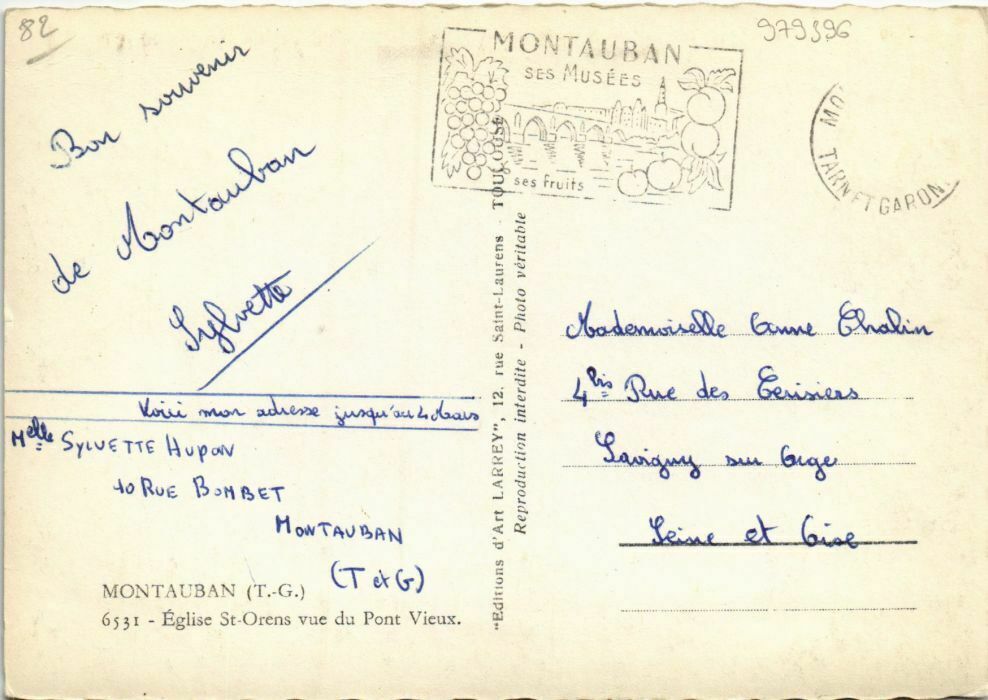 82
979396
Bon souvenir
de Montauban
Sylvette
Voici mon adresse jusqu'au 4 Mars
Melle SYLVETTE HUPON
10 RUE BOMBET
MONTAUBAN
(T et G)
MONTAUBAN (T.-G.)
6531 - Église St-Orens vue du Pont Vieux.
"Editions d'Art LARREY", 12, rue Saint-Laurens - TOULOUSE
Reproduction interdite - Photo véritable
MONTAUBAN
SES MUSÉES
ses fruits
TARN ET GARON
Mademoiselle Anne Chalin
4 bis Rue des Cerisiers
Savigny sur Orge
Seine et Oise